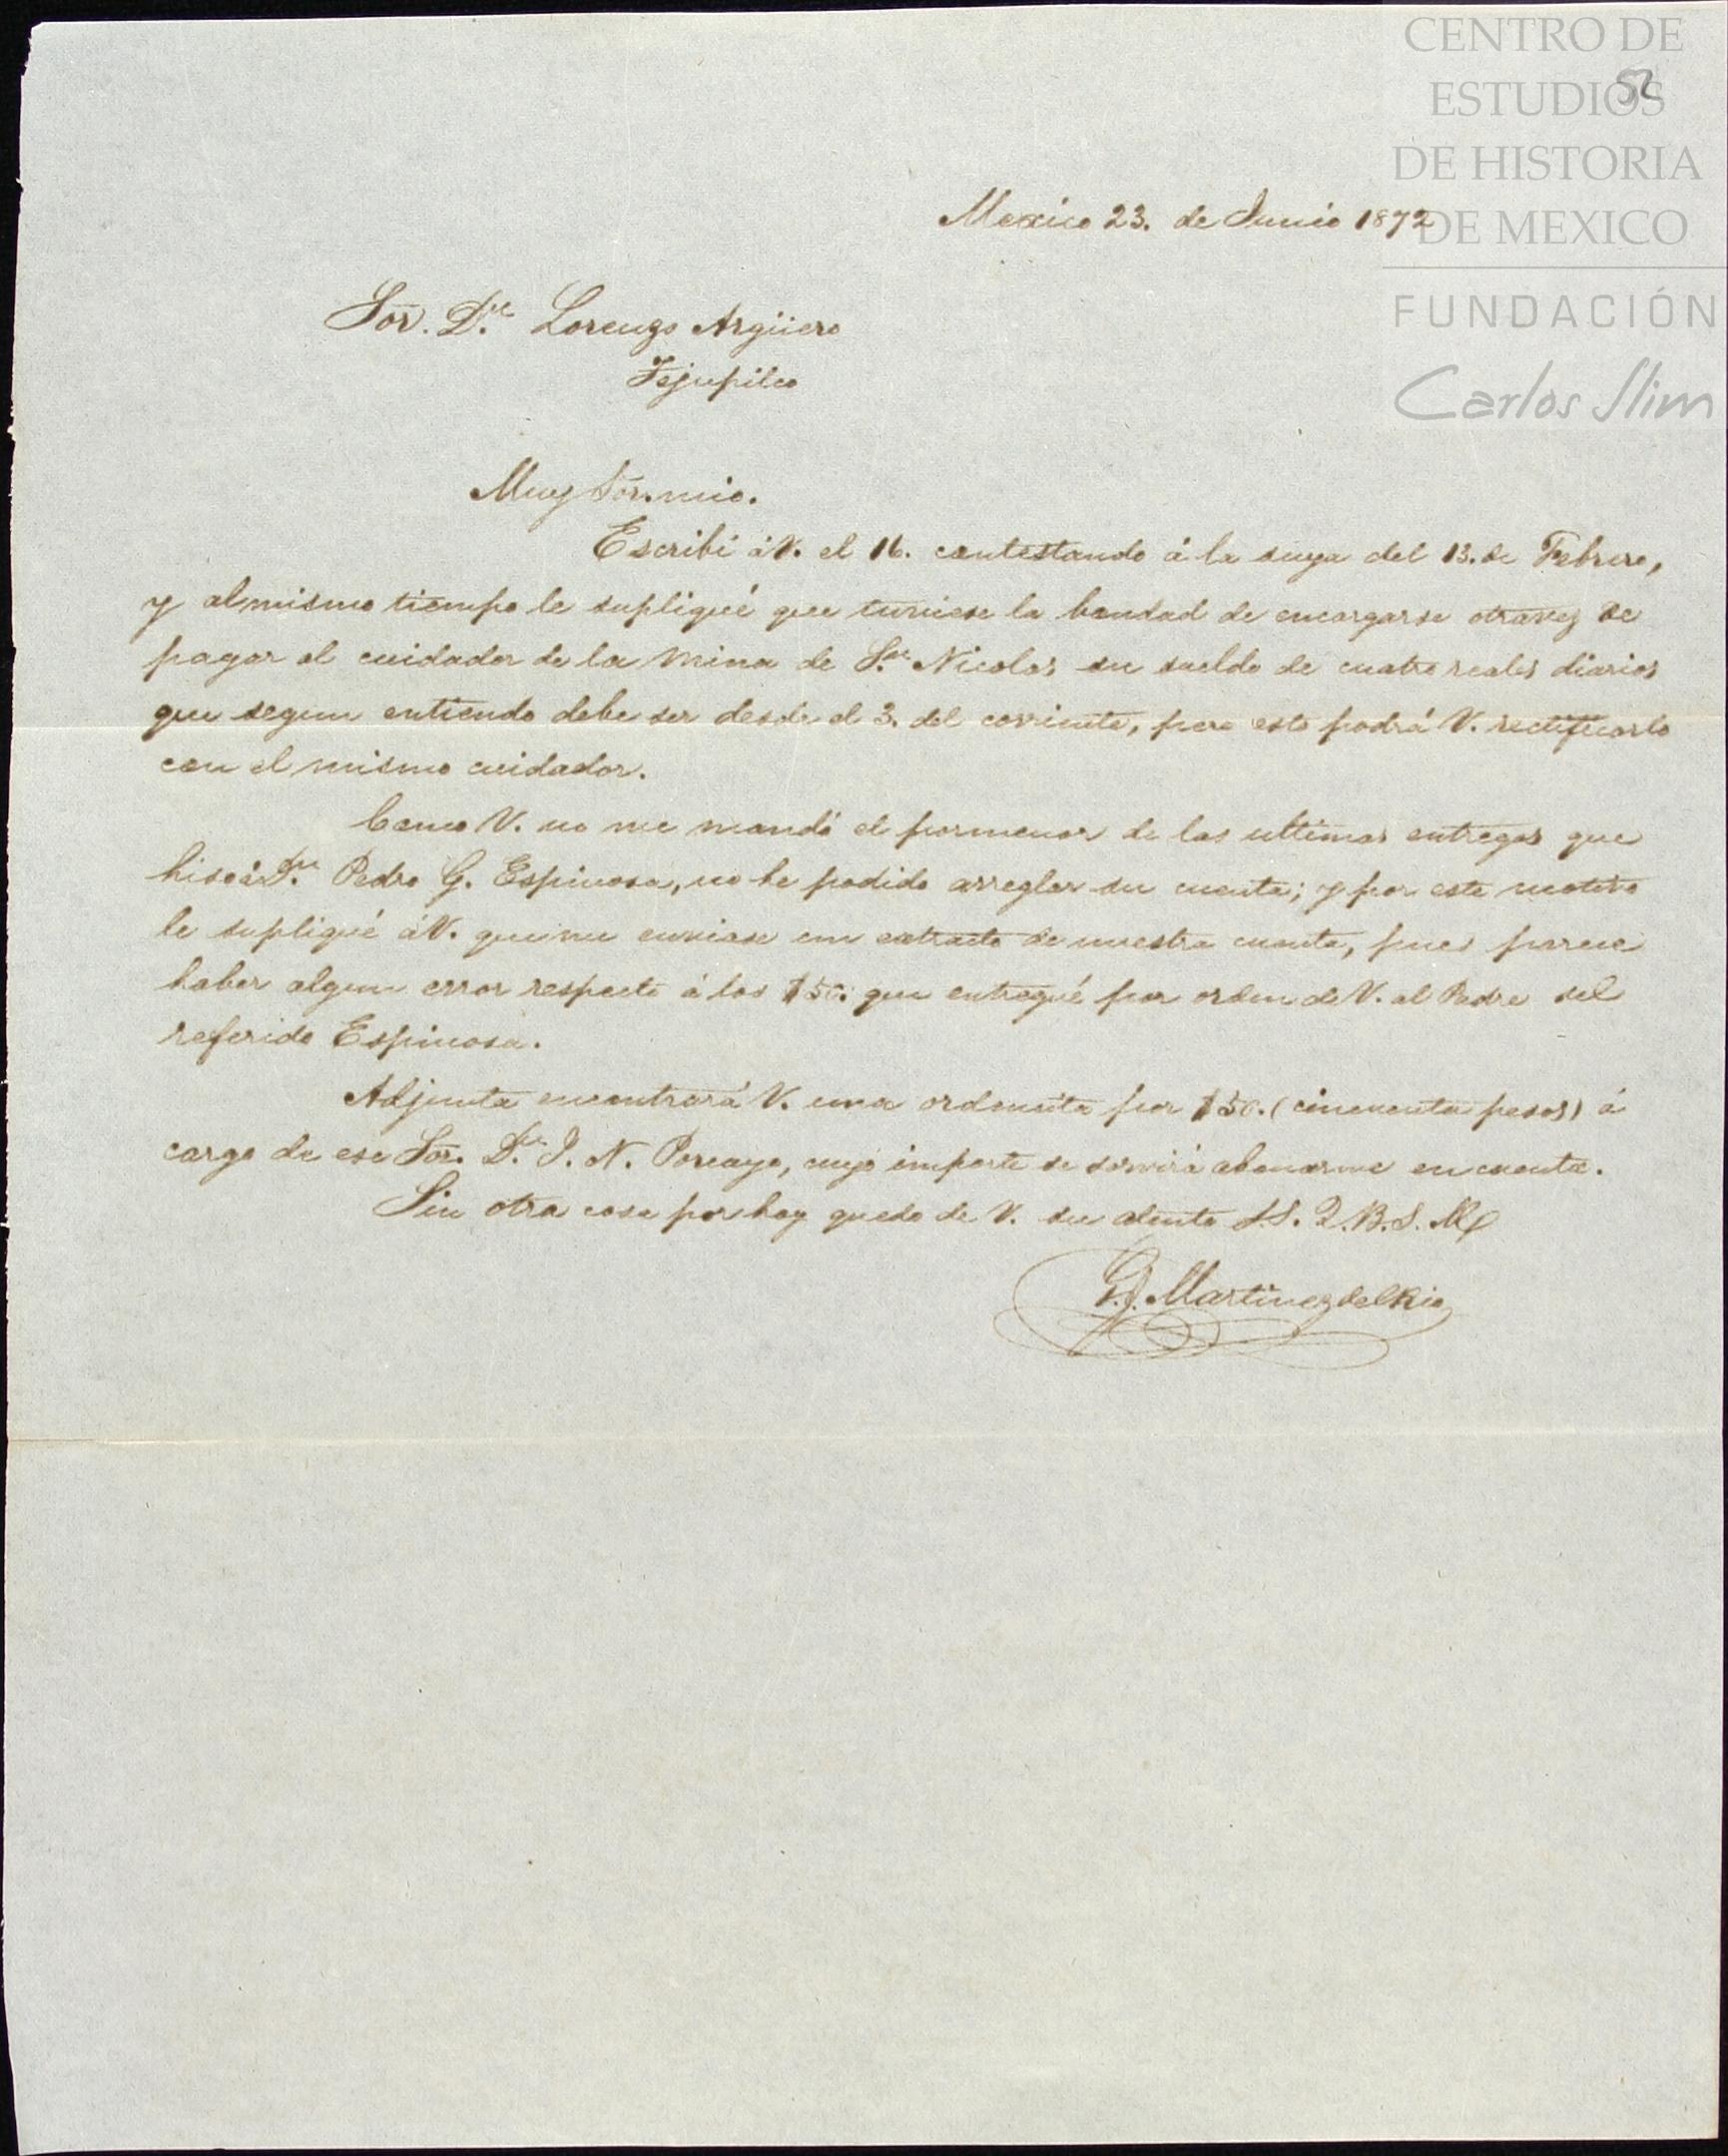 CENTRO DE
ESTUDIOS
DE HISTORIA
DE MEXICO
FUNDACIÓN
Carlos Slim
52
Mexico 23. de Junio 1872
Sor. Dn. Lorenzo Argüero
Tejupilco
Muy Sor. mio.
Escribí á V. el 16. contestando á la suya del 13. de Febrero,
y al mismo tiempo le supliqué que tuviese la bondad de encargarse otravez de
pagar al cuidador de la Mina de Sn. Nicolas su sueldo de cuatro reales diarios
que segun entiendo debe ser desde el 3. del corriente, pero esto podrá V. rectificarlo
con el mismo cuidador.
Como V. no me mandó el pormenor de las ultimas entregas que
hiso á Dn. Pedro G. Espinosa, no he podido arreglar su cuenta; y por este motivo
le supliqué á V. que me enviase un extracto de nuestra cuenta, pues parece
haber algun error respecto á los $50. que entregué por orden de V. al Padre del
referido Espinosa.
Adjunta encontrará V. una ordencita por $50. (cincuenta pesos) á
cargo de ese Sor. Dn. J. N. Porcayo, cuyo importe se servirá abonarme en cuenta.
Sin otra cosa por hoy quedo de V. su atento S.S. Q.B.S.M.
Martinez del Rio